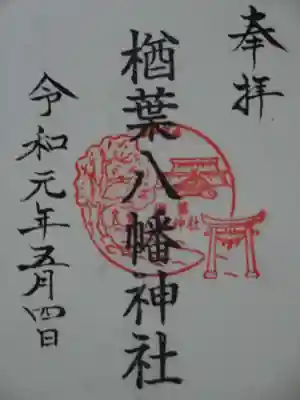 奉拝
楢葉八幡神社
令和元年五月四日